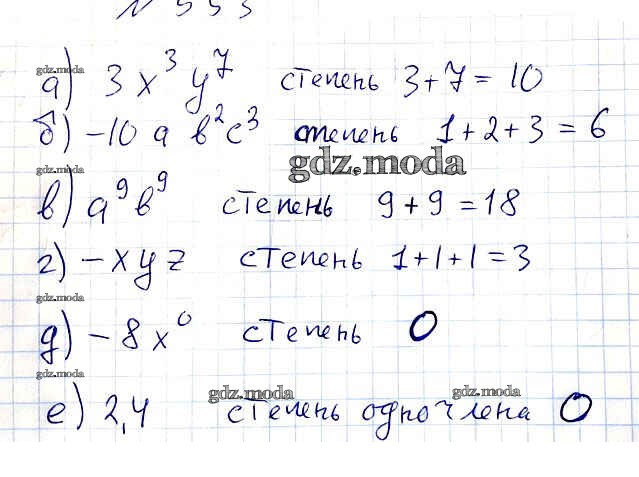 а) 3 x³ y⁷ степень 3 + 7 = 10
б) -10 a b²c³ степень 1 + 2 + 3 = 6
в) a⁹b⁹ степень 9 + 9 = 18
г) - x y z степень 1 + 1 + 1 = 3
д) - 8 x⁰ степень 0
е) 2,4 степень одночлена 0
gdz.moda
gdz.moda
gdz.moda
gdz.moda
gdz.moda
gdz.moda
gdz.moda